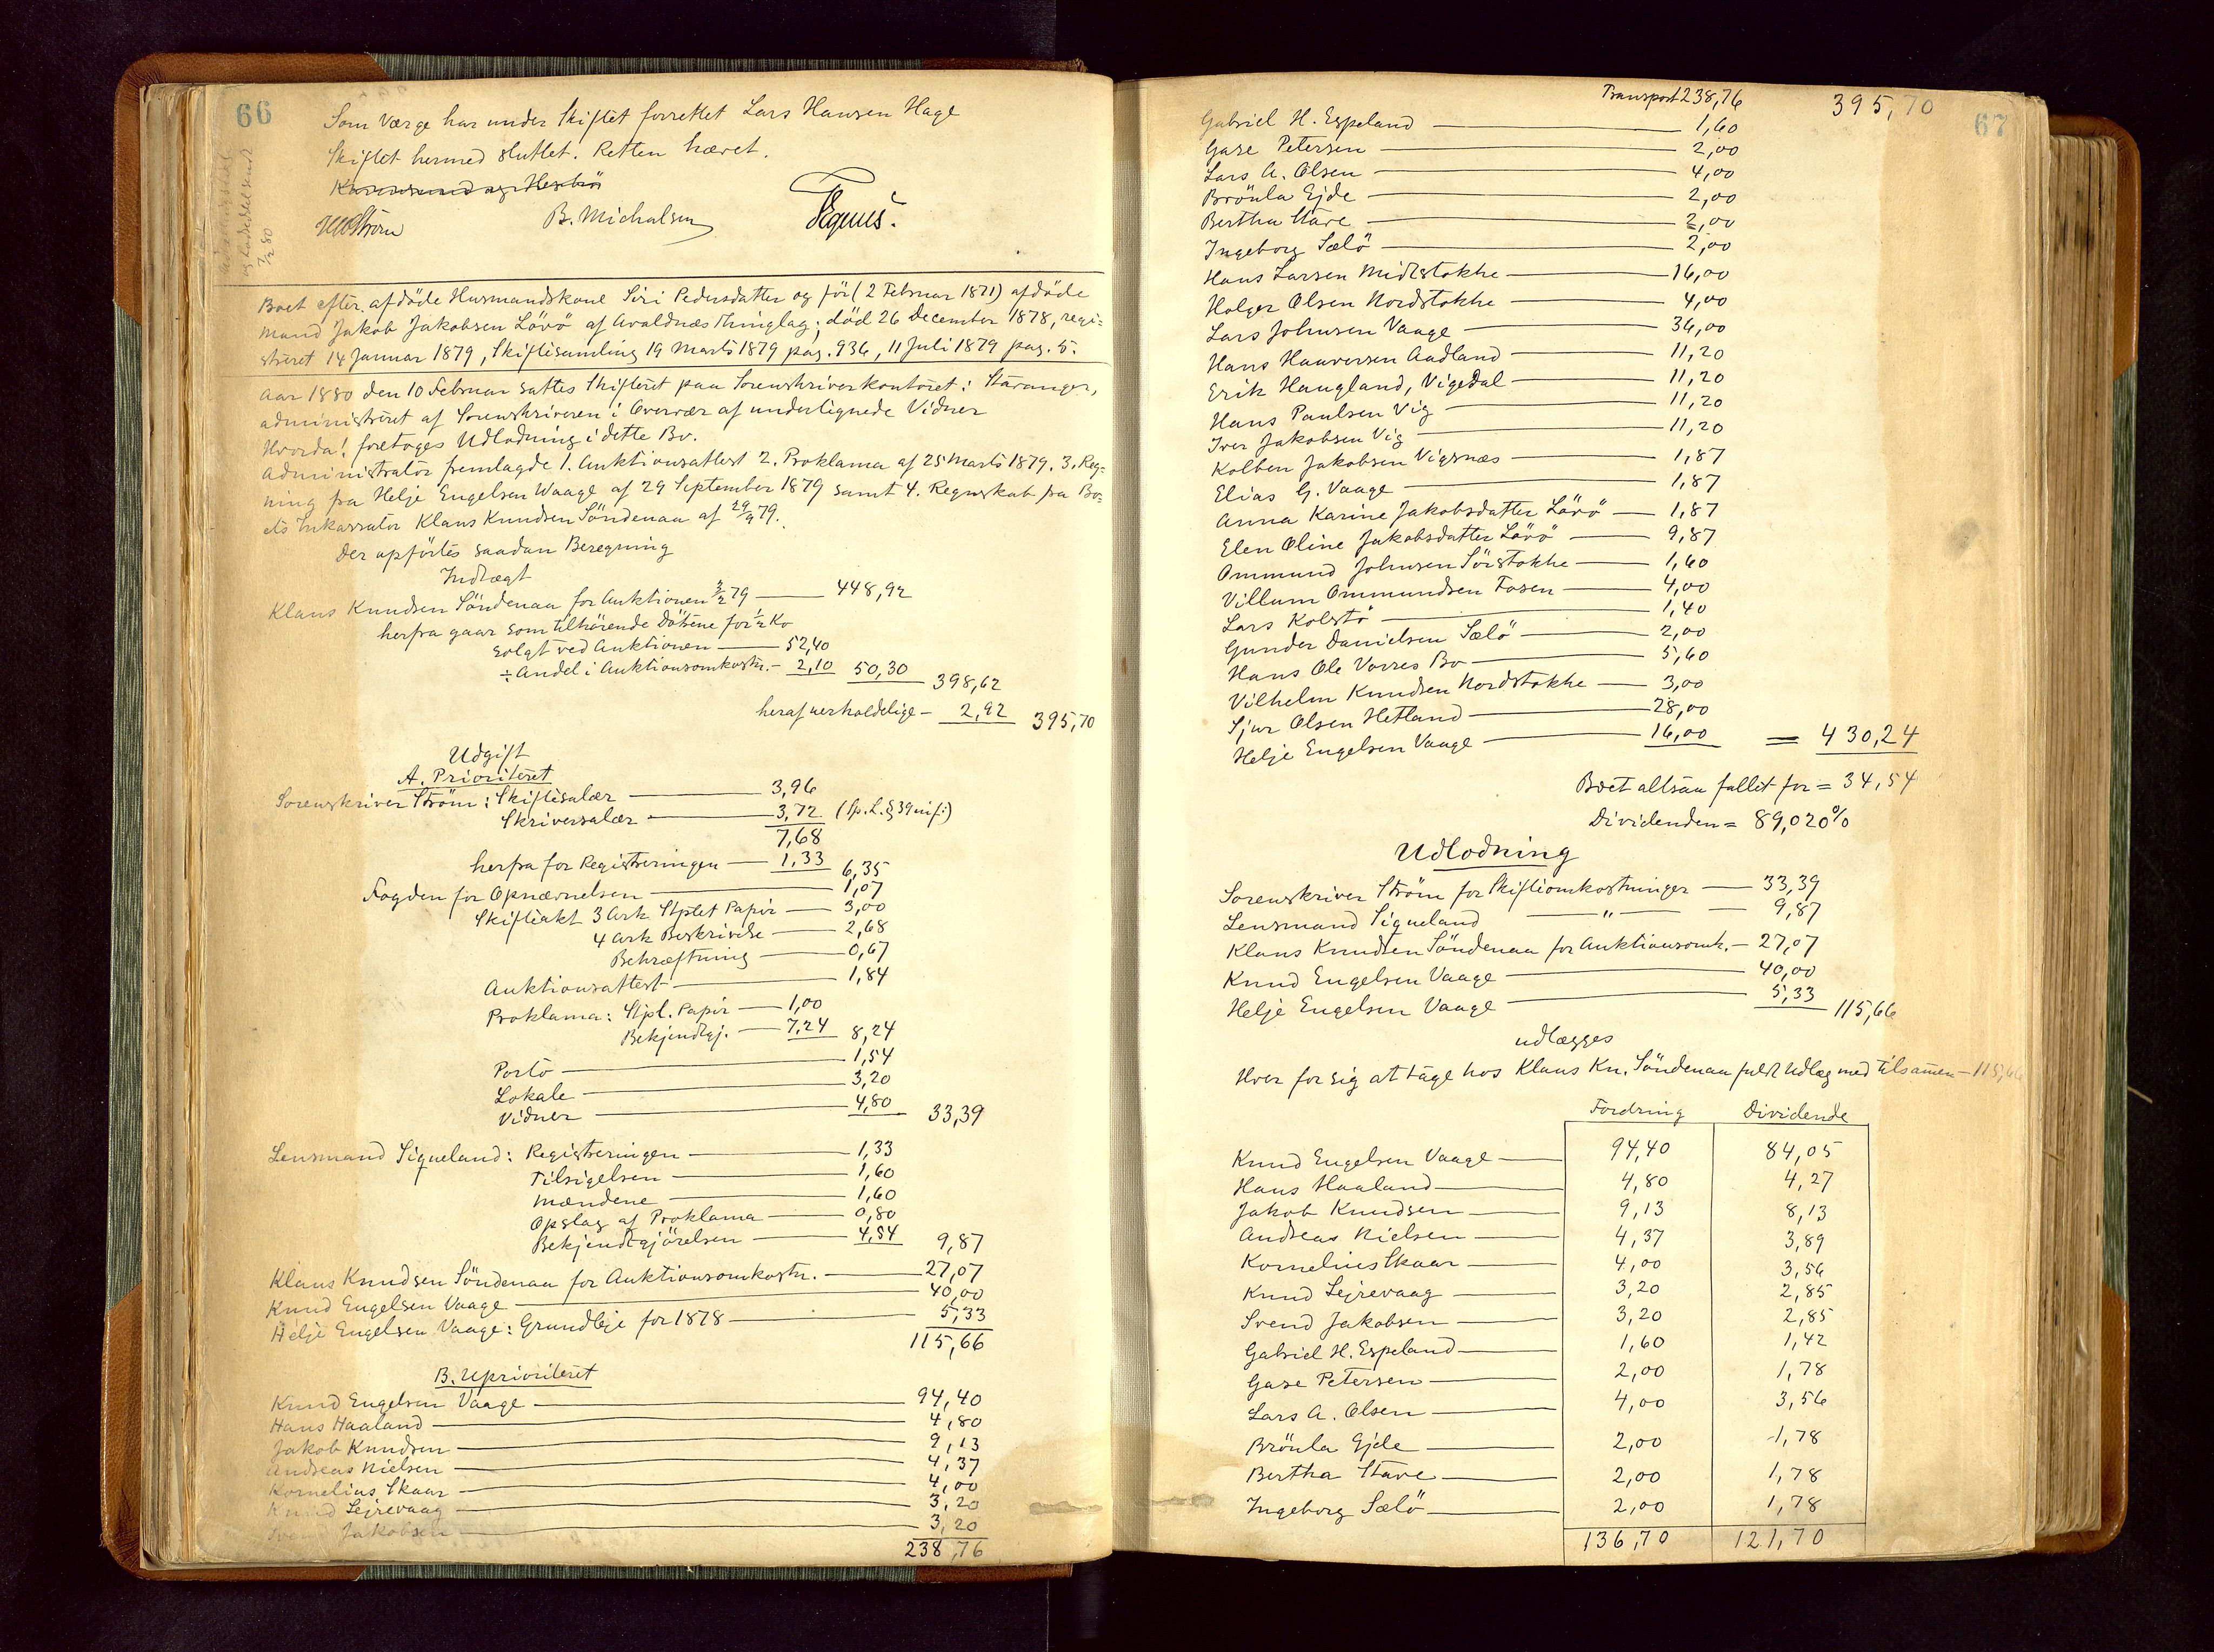 66
Som Værge har under Skiftet forrettet Lars Hansen Hage
Skiftet hermed sluttet. Retten hævet.
Ström B. Michalsen
7/2 80
Boet efter afdöde Husmandskone Siri Pedersdatter og för (2 Februar 1871) afdöde
Mand Jakob Jakobsen Lövö af Avaldnæs Thinglag; död 26 December 1878, regi=
streret 14 Januar 1879, Skiftesamling 19 Marts 1879 pag. 936, 11 Juli 1879 pag. 5.
Aar 1880 den 10 Februar sattes Skifteret paa Sorenskriverkontoret i Stavanger,
administreret af Sorenskriveren i Overvær af undertegnede Vidner
Hvorda! foretoges Udlodning i dette Bo.
Administrator fremlagde 1. Auktionsattest 2. Proklama af 25 Marts 1879. 3. Reg=
ning fra Helje Engelsen Waage af 29 September 1879 samt 4. Regnskab fra Bo=
ets Inkassator Klaus Knudsen Söndenaa af 29/9 79.
Der opförtes saadan Beregning
Indtægt
Klaus Knudsen Söndenaa for Auktionen 3/2 79 — 448,92
herfra gaar som tilhörende Döttrene for 1/2 Ko
solgt ved Auktionen — 52,40
÷ Andel i Auktionsomkostn. — 2,10 50,30 398,62
heraf uerholdelige — 2,92 395,70
Udgift
A. Prioriteret
Sorenskriver Ström: Skiftesalær — 3,96
Skriversalær — 3,72 (Sp. L. § 39 in f:)
7,68
herfra for Registreringen — 1,33 6,35
Fogden for Opnævnelsen — 1,07
Skifteakt 3 Ark Stplet Papir — 3,00
4 Ark Beskrivelse — 2,68
Bekræftning — 0,67
Auktionsattest — 1,84
Proklama: Stpl. Papir — 1,00
Bekjendtgj. — 7,24 8,24
Porto — 1,54
Lokale — 3,20
Vidner — 4,80 33,39
Lensmand Siqueland: Registreringen — 1,33
Tilsigelsen — 1,60
Mændene — 1,60
Opslag af Proklama — 0,80
Bekjendtgjörelsen — 4,54 9,87
Klaus Knudsen Söndenaa for Auktionsomkostn. — 27,07
Knud Engelsen Vaage — 40,00
Helje Engelsen Vaage: Grundleje for 1878 — 5,33
115,66
B. Uprioriteret
Knud Engelsen Vaage — 94,40
Hans Haaland — 4,80
Jakob Knudsen — 9,13
Andreas Nielsen — 4,37
Kornelius Skaar — 4,00
Knud Sejrevaag — 3,20
Svend Jakobsen — 3,20
238,76
67
Transport 238,76 395,70
Gabriel H. Espeland — 1,60
Gase Petersen — 2,00
Lars A. Olsen — 4,00
Brönla Ejde — 2,00
Bertha Stave — 2,00
Ingeborg Sælö — 2,00
Hans Larsen Midtstokke — 16,00
Holger Olsen Nordstokke — 4,00
Lars Johnsen Vaage — 36,00
Hans Haaversen Aadland — 11,20
Erik Haugland, Vigedal — 11,20
Hans Paulsen Vig — 11,20
Iver Jakobsen Vig — 11,20
Kolben Jakobsen Vigsnæs — 1,87
Elias G. Vaage — 1,87
Anna Karine Jakobsdatter Lövö — 1,87
Elen Oline Jakobsdatter Lövö — 9,87
Ommund Johnsen Sörstokke — 1,60
Villum Ommundsen Fosen — 4,00
Lars Kolstö — 1,40
Gunder Danielsen Sælö — 2,00
Hans Ole Vorres Bo — 5,60
Vilhelm Knudsen Nordstokke — 3,00
Sjur Olsen Hetland — 28,00
Helje Engelsen Vaage — 16,00 = 430,24
Boet altsaa fallit for = 34,54
Dividenden = 89,020%
Udlodning
Sorenskriver Ström for Skifteomkostninger — 33,39
Lensmand Siqueland — " — 9,87
Klaus Knudsen Söndenaa for Auktionsomk. — 27,07
Knud Engelsen Vaage — 40,00
Helje Engelsen Vaage — 5,33 115,66
udlægges
Hver for sig at tage hos Klaus Kn. Söndenaa fuldt Udlæg med tilsamen — 115,66
Fordring Dividende
Knud Engelsen Vaage — 94,40 84,05
Hans Haaland — 4,80 4,27
Jakob Knudsen — 9,13 8,13
Andreas Nielsen — 4,37 3,89
Kornelius Skaar — 4,00 3,56
Knud Sejrevaag — 3,20 2,85
Svend Jakobsen — 3,20 2,85
Gabriel H. Espeland — 1,60 1,42
Gase Petersen — 2,00 1,78
Lars A. Olsen — 4,00 3,56
Brönla Ejde — 2,00 1,78
Bertha Stave — 2,00 1,78
Ingeborg Sælö — 2,00 1,78
136,70 121,70